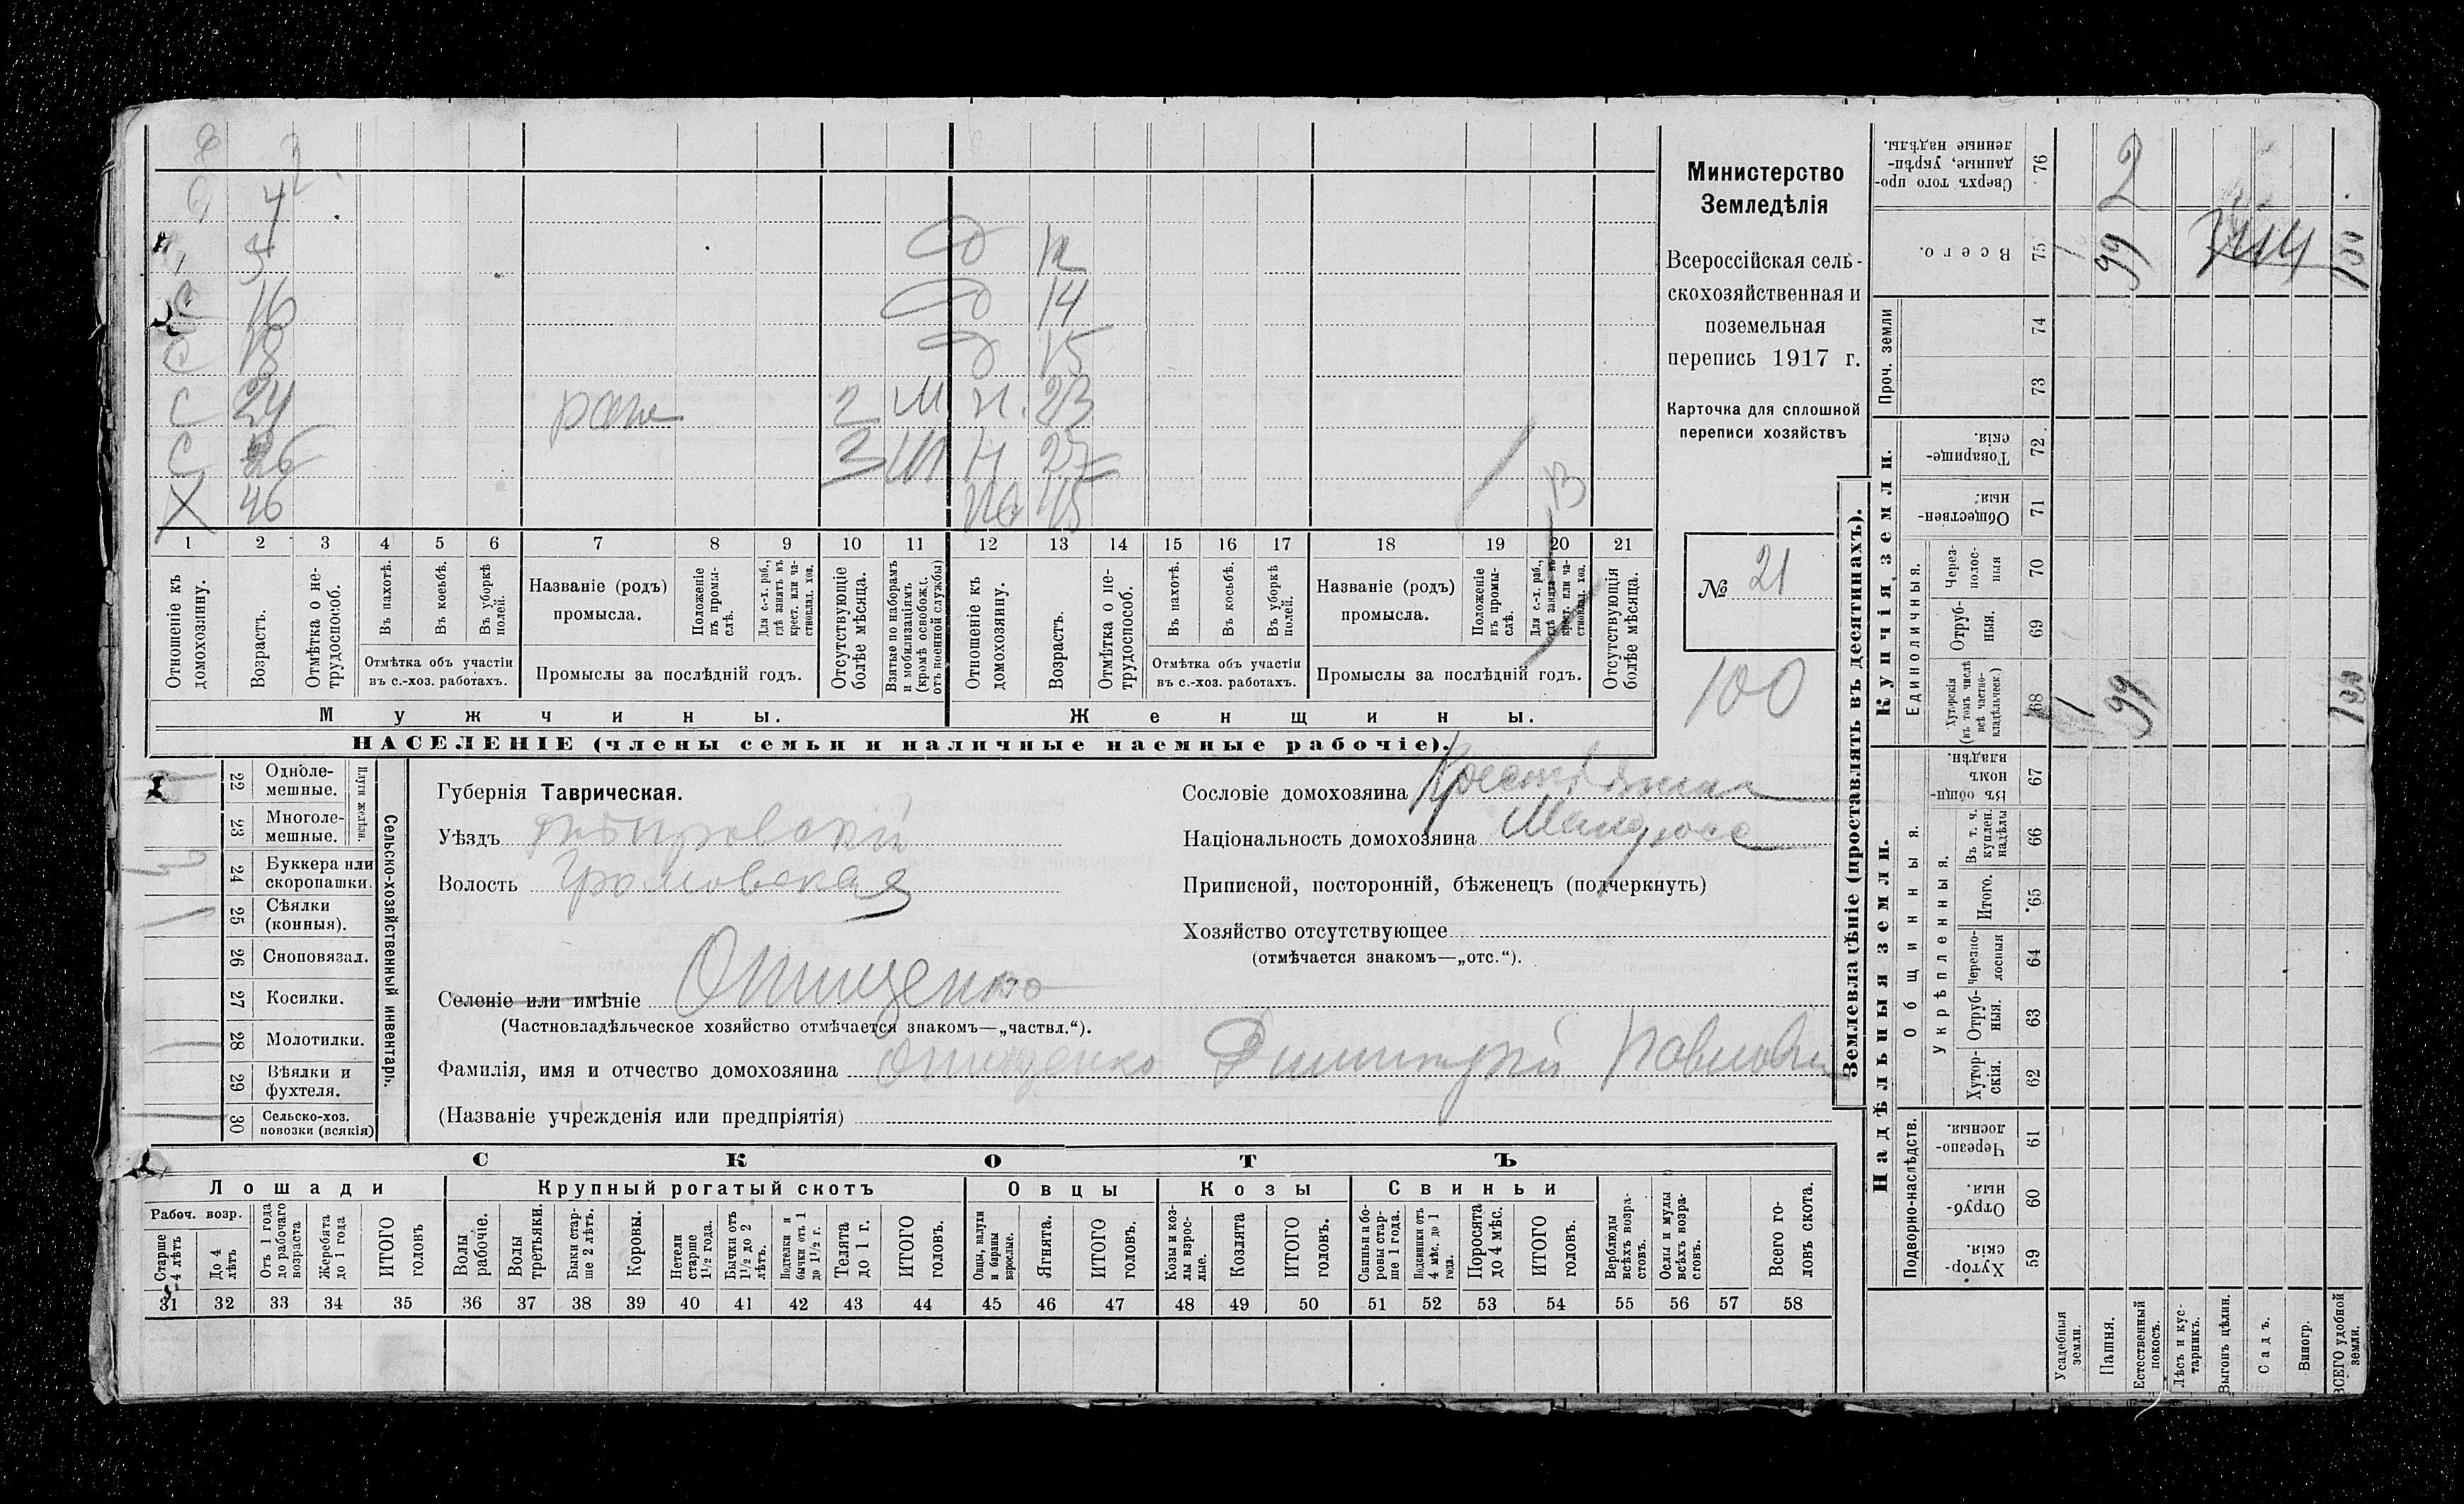 8 2.
4
5 д 12
с 16 д 14
с 18 д 15
с 24 ране 2 М н. 23
с 26 3 М н 27
Х 46 45
1 2 3 4 5 6 7 8 9 10 11 12 13 14 15 16 17 18 19 20 21
Отношеніе къ домохозяину.
Возрастъ.
Отмѣтка о не-трудоспособ.
Въ пахотѣ.
Въ косьбѣ.
Въ уборкѣ полей.
Отмѣтка объ участіи
въ с.-хоз. работахъ.
Названіе (родъ)
промысла.
Положеніе въ промы-слѣ.
Для с.-х. раб., гдѣ занятъ въ крест. или ча-стновлад. хоз.
Промыслы за послѣдній годъ.
Отсутствующіе болѣе мѣсяца.
Взятые по наборамъ и мобилизаціямъ (кромѣ освобож. отъ военной службы)
Отношеніе къ домохозяину.
Возрастъ.
Отмѣтка о не-трудоспособ.
Въ пахотѣ.
Въ косьбѣ.
Въ уборкѣ полей.
Отмѣтка объ участіи
въ с.-хоз. работахъ.
Названіе (родъ)
промысла.
Положеніе въ промы-слѣ.
Для с.-х. раб., гдѣ занята въ крест. или ча-стновлад. хоз.
Промыслы за послѣдній годъ.
Отсутствующія болѣе мѣсяца.
Мужчины. Женщины.
НАСЕЛЕНІЕ (члены семьи и наличные наемные рабочіе).
Министерство
Земледѣлія
Всероссійская сель-
скохозяйственная и
поземельная
перепись 1917 г.
Карточка для сплошной
переписи хозяйствъ
№ 21
100
22 Одноле-мешные.
23 Многоле-мешные.
Плуги желѣзн.
24 Буккера или скоропашки.
25 Сѣялки (конныя).
26 Сноповязал.
27 Косилки.
28 Молотилки.
29 Вѣялки и фухтеля.
30 Сельско-хоз. повозки (всякія)
Сельско-хозяйственный инвентарь.
Губернія Таврическая.
Уѣздъ Днѣпровскій
Волость Громовская
Селеніе или имѣніе Онищенко
(Частновладѣльческое хозяйство отмѣчается знакомъ—„частвл.“).
Фамилія, имя и отчество домохозяина Онищенко Димитрій Павлович
(Названіе учрежденія или предпріятія)
Сословіе домохозяина Крестьянин
Національность домохозяина Малоросс
Приписной, посторонній, бѣженецъ (подчеркнуть)
Хозяйство отсутствующее
(отмѣчается знакомъ—„отс.“).
СКОТЪ
Лошади Крупный рогатый скотъ Овцы Козы Свиньи
Рабоч. возр.
Старше 4 лѣтъ
До 4 лѣтъ
Отъ 1 года до рабочаго возраста
Жеребята до 1 года
ИТОГО головъ
Волы рабочіе.
Волы третьяки.
Быки стар-ше 2 лѣтъ.
Коровы.
Нетели старше 1½ года.
Бычки отъ 1½ до 2 лѣтъ.
Подтелки и бычки отъ 1 до 1½ г.
Телята до 1 г.
ИТОГО головъ.
Овцы, валухи и бараны взрослые.
Ягнята.
ИТОГО головъ.
Козы и коз-лы взрос-лые.
Козлята
ИТОГО головъ.
Свиньи и бо-ровы стар-ше 1 года.
Подсвинки отъ 4 мѣс. до 1 года.
Поросята до 4 мѣс.
ИТОГО головъ.
Верблюды всѣхъ возра-стовъ.
Ослы и мулы всѣхъ возра-стовъ.
Всего го-ловъ скота.
31 32 33 34 35 36 37 38 39 40 41 42 43 44 45 46 47 48 49 50 51 52 53 54 55 56 57 58
Землевладѣніе (проставлять въ десятинахъ).
Надѣльныя земли. Купчія земли.
Проч. земли
Подворно-наслѣдств.
Общинныя.
Укрѣпленныя.
Единоличныя.
Сверхъ того про-данные, укрѣп-ленные надѣлы. 76 2
Всего. 75 1 99 100
74
73
Товарище-скія. 72
Обществен-ныя. 71
Через-полос-ныя 70
Отруб-ныя. 69
Хуторскія (въ томъ числѣ всѣ частно-владѣльческ.) 68 1 99 100
Въ общин-номъ владѣн. 67
Въ т. ч. куплен. надѣлы 66
Итого. 65
Черезпо-лосныя 64
Отруб-ныя. 63
Хутор-скія. 62
Черезпо-лосныя. 61
Отруб-ныя. 60
Хутор-скія. 59
Усадебныя земли.
Пашня.
Естественный покосъ.
Лѣсъ и кус-тарникъ.
Выгонъ цѣлин.
Садъ.
Виногр.
ВСЕГО удобной земли.